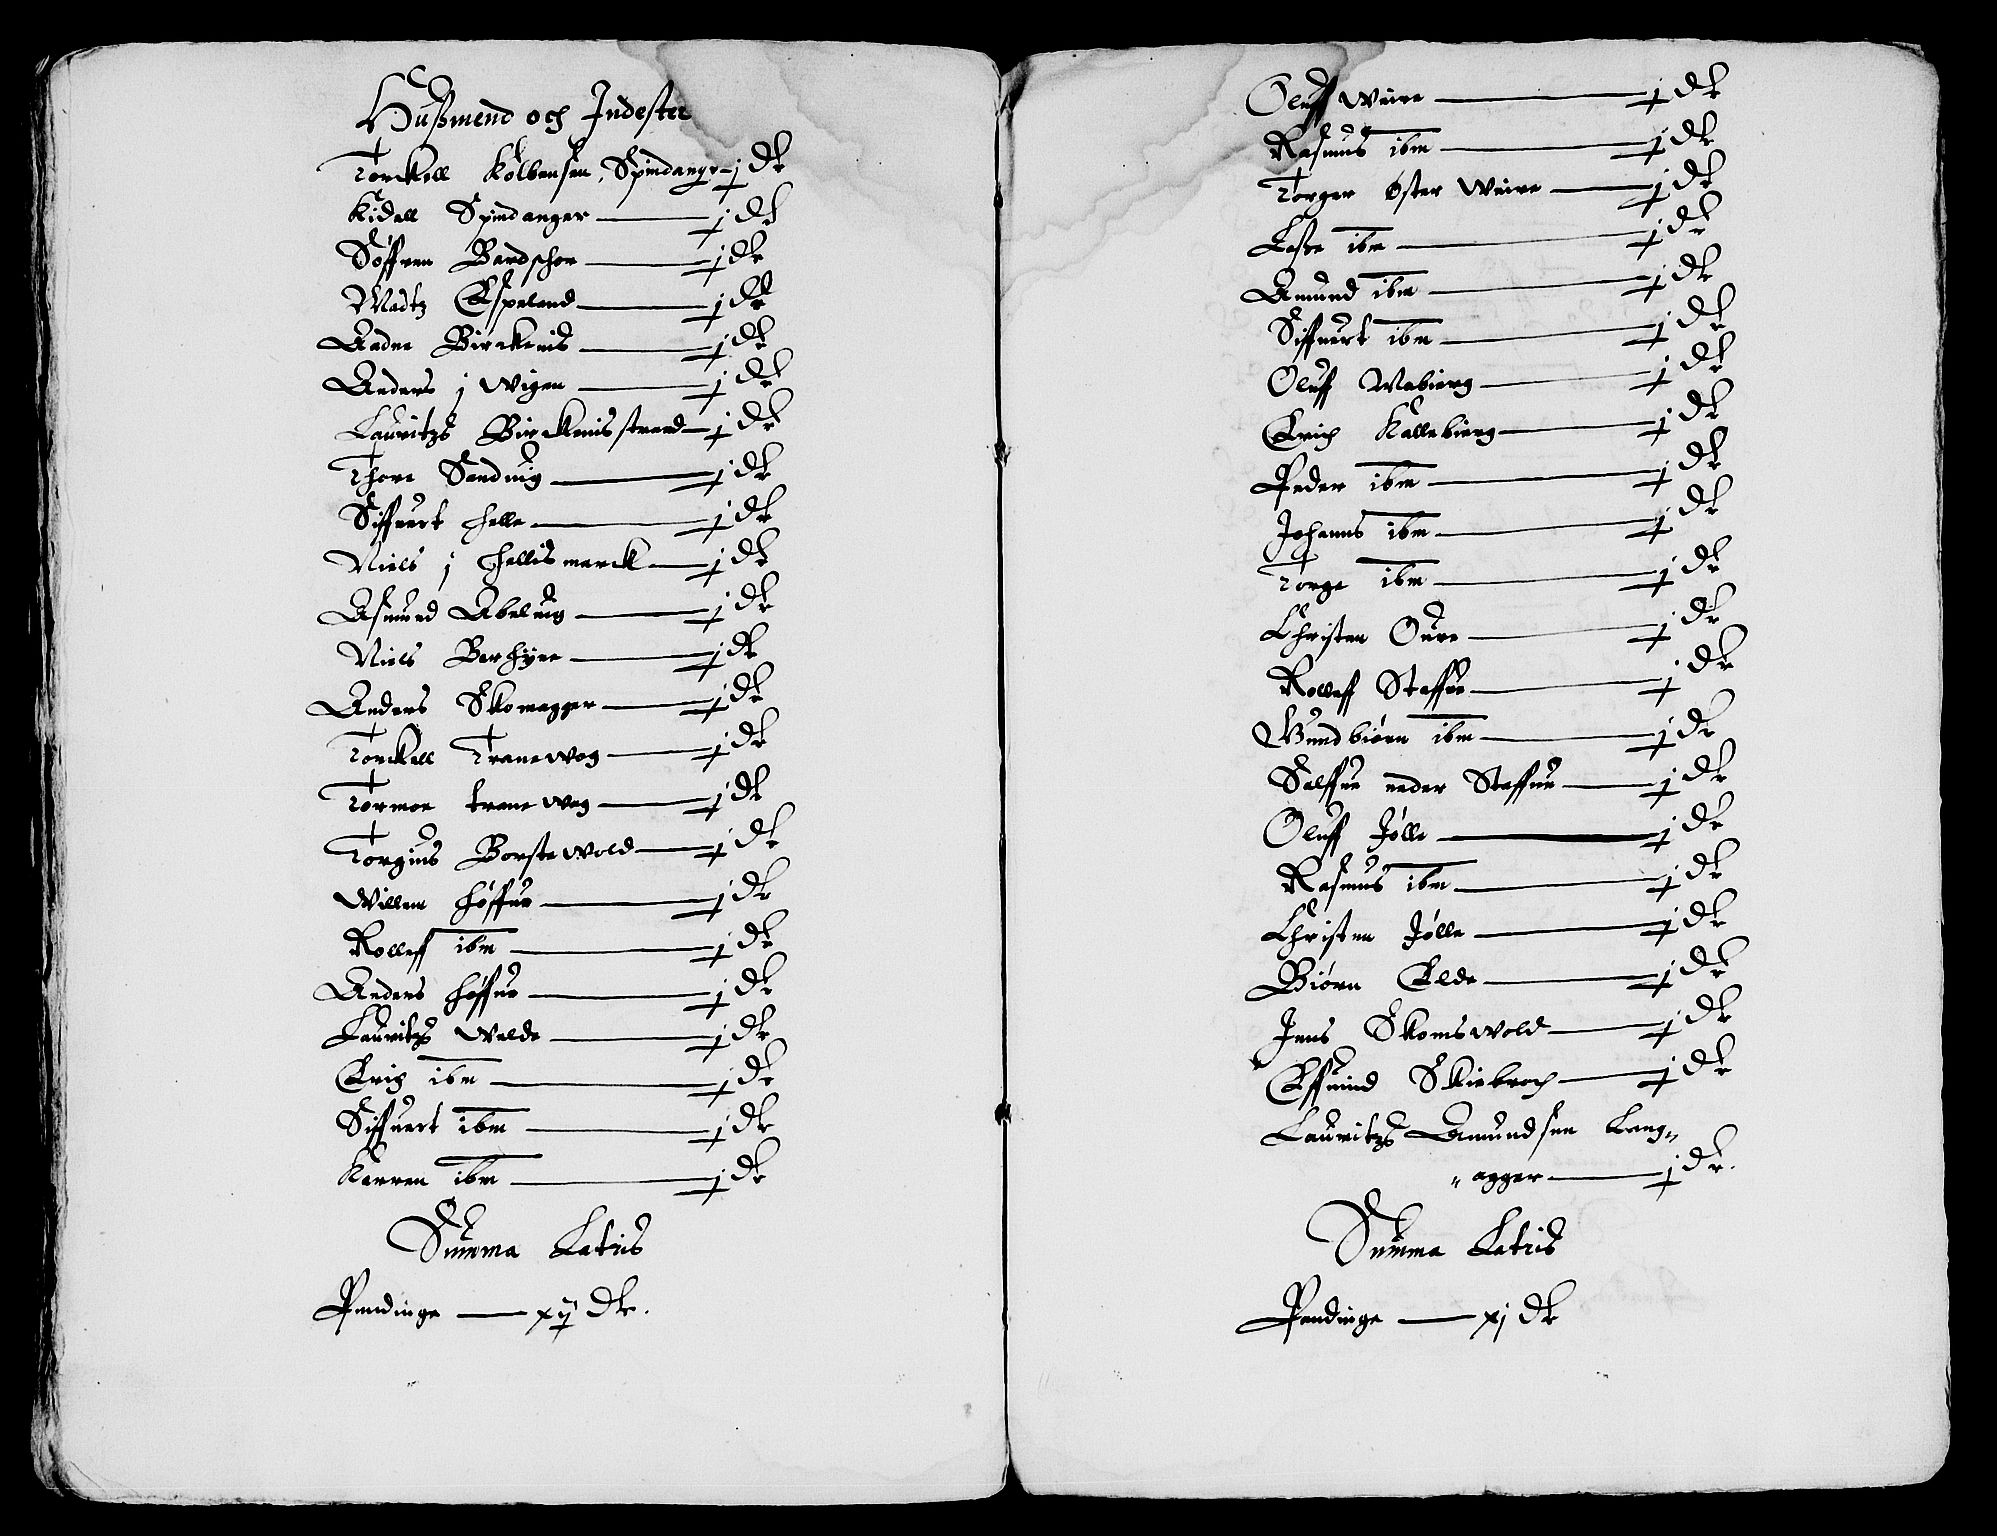 Hußmend och Indester
Torckell Kolbensen, Spindanger j dr
Kidell Spindanger j dr
Søffren Bardschor j dr
Madtz Espeland j dr
Aadne Birckenis j dr
Anders j Wigen j dr
Lauritzs Birckenisstrand j dr
Thore Sanduig j dr
Siffuert Helle j dr
Niels j Hellismarck j dr
Asmund Abeluig j dr
Niels Berhiire j dr
Anders Skomagger j dr
Torckell Tranewog j dr
Tormoe tranewog j dr
Torgius Borstewold j dr
Willem Høffue j dr
Rolleff ibm j dr
Anders Høffue j dr
Lauritzs Welde j dr
Erich ibm j dr
Siffuert ibm j dr
Karren ibm j dr
Summa Lateris
Pendinge xij dr.
Oluff Weire j dr
Rasmus ibm j dr
Torger Øster Weire j dr
Lasse ibm j dr
Amund ibm j dr
Siffuert ibm j dr
Oluff Wabierg j dr
Erich Kallebierg j dr
Peder ibm j dr
Johanns ibm j dr
Torge ibm j dr
Christen Oure j dr
Rolleff Staffue j dr
Gundbiørn ibm j dr
Salffue neder Staffue j dr
Oluff Jølle j dr
Rasmus ibm j dr
Christen Jølle j dr
Biørn Elde j dr
Jens Skomswold j dr
Effuind Skiebroch j dr
Lauritzs Amundsen Lang„
„agger j dr.
Summa Lateris
Pendinge xj dr